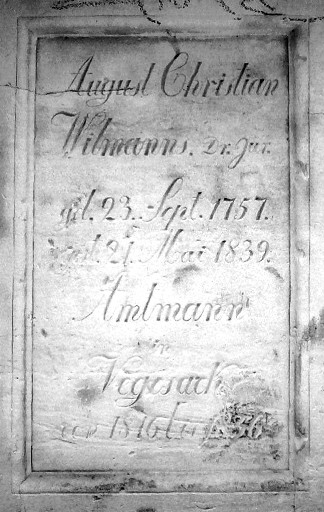 August Christian
Wilmanns. Dr. Jur.
geb. 23. Sept. 1757.
gest. 21. Mai 1839.
Amtmann
in
Vegesack
von 1816 bis